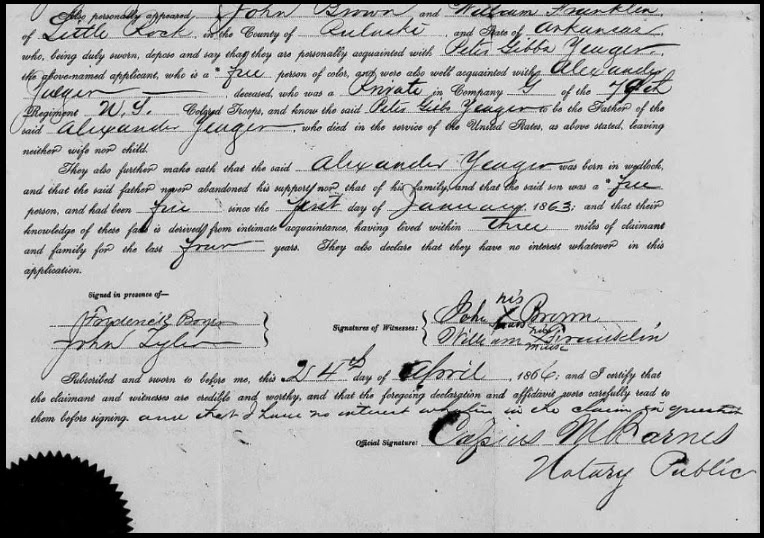 Also personally appeared John Brown and William Franklin
of Little Rock in the County of Pulaski and State of Arkansas
who, being duly sworn, depose and say that they are personally acquainted with Peter Gibbs Yeager
the above-named applicant, who is a "free person of color, and were also well acquainted with Alexander
Yeager deceased, who was a Private in Company G of the 79th
Regiment U.S. Colored Troops, and know the said Peter Gibbs Yeager to be the Father of the
said Alexander Yeager who died in the service of the United States, as above stated, leaving
neither wife nor child.
They also further make oath that the said Alexander Yeager was born in wedlock,
and that the said father never abandoned his support nor that of his family, and that the said son was a "free
person, and had been free since the first day of January 1863; and that their
knowledge of these facts is derived from intimate acquaintance, having lived within three miles of claimant
and family for the last four years. They also declare that they have no interest whatever in this
application.
Signed in presence of—
Frederick
John Tyler
Signatures of Witnesses:
John his X mark Brown
William his X mark Franklin
Subscribed and sworn to before me, this 24th day of April 1866; and I certify that
the claimant and witnesses are credible and worthy, and that the foregoing declaration and affidavit were carefully read to
them before signing. and that I have no interest whatever in the claim in question
Official Signature: Cassius M Barnes
Notary Public